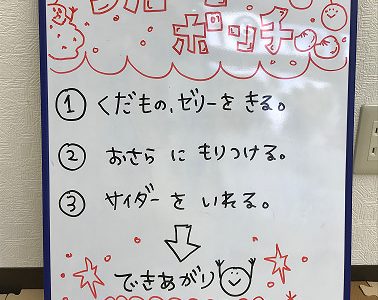 フルーツ
ポンチ
① くだもの、ゼリーを きる。
② おさら に もりつける。
③ サイダー を いれる。
できあがり